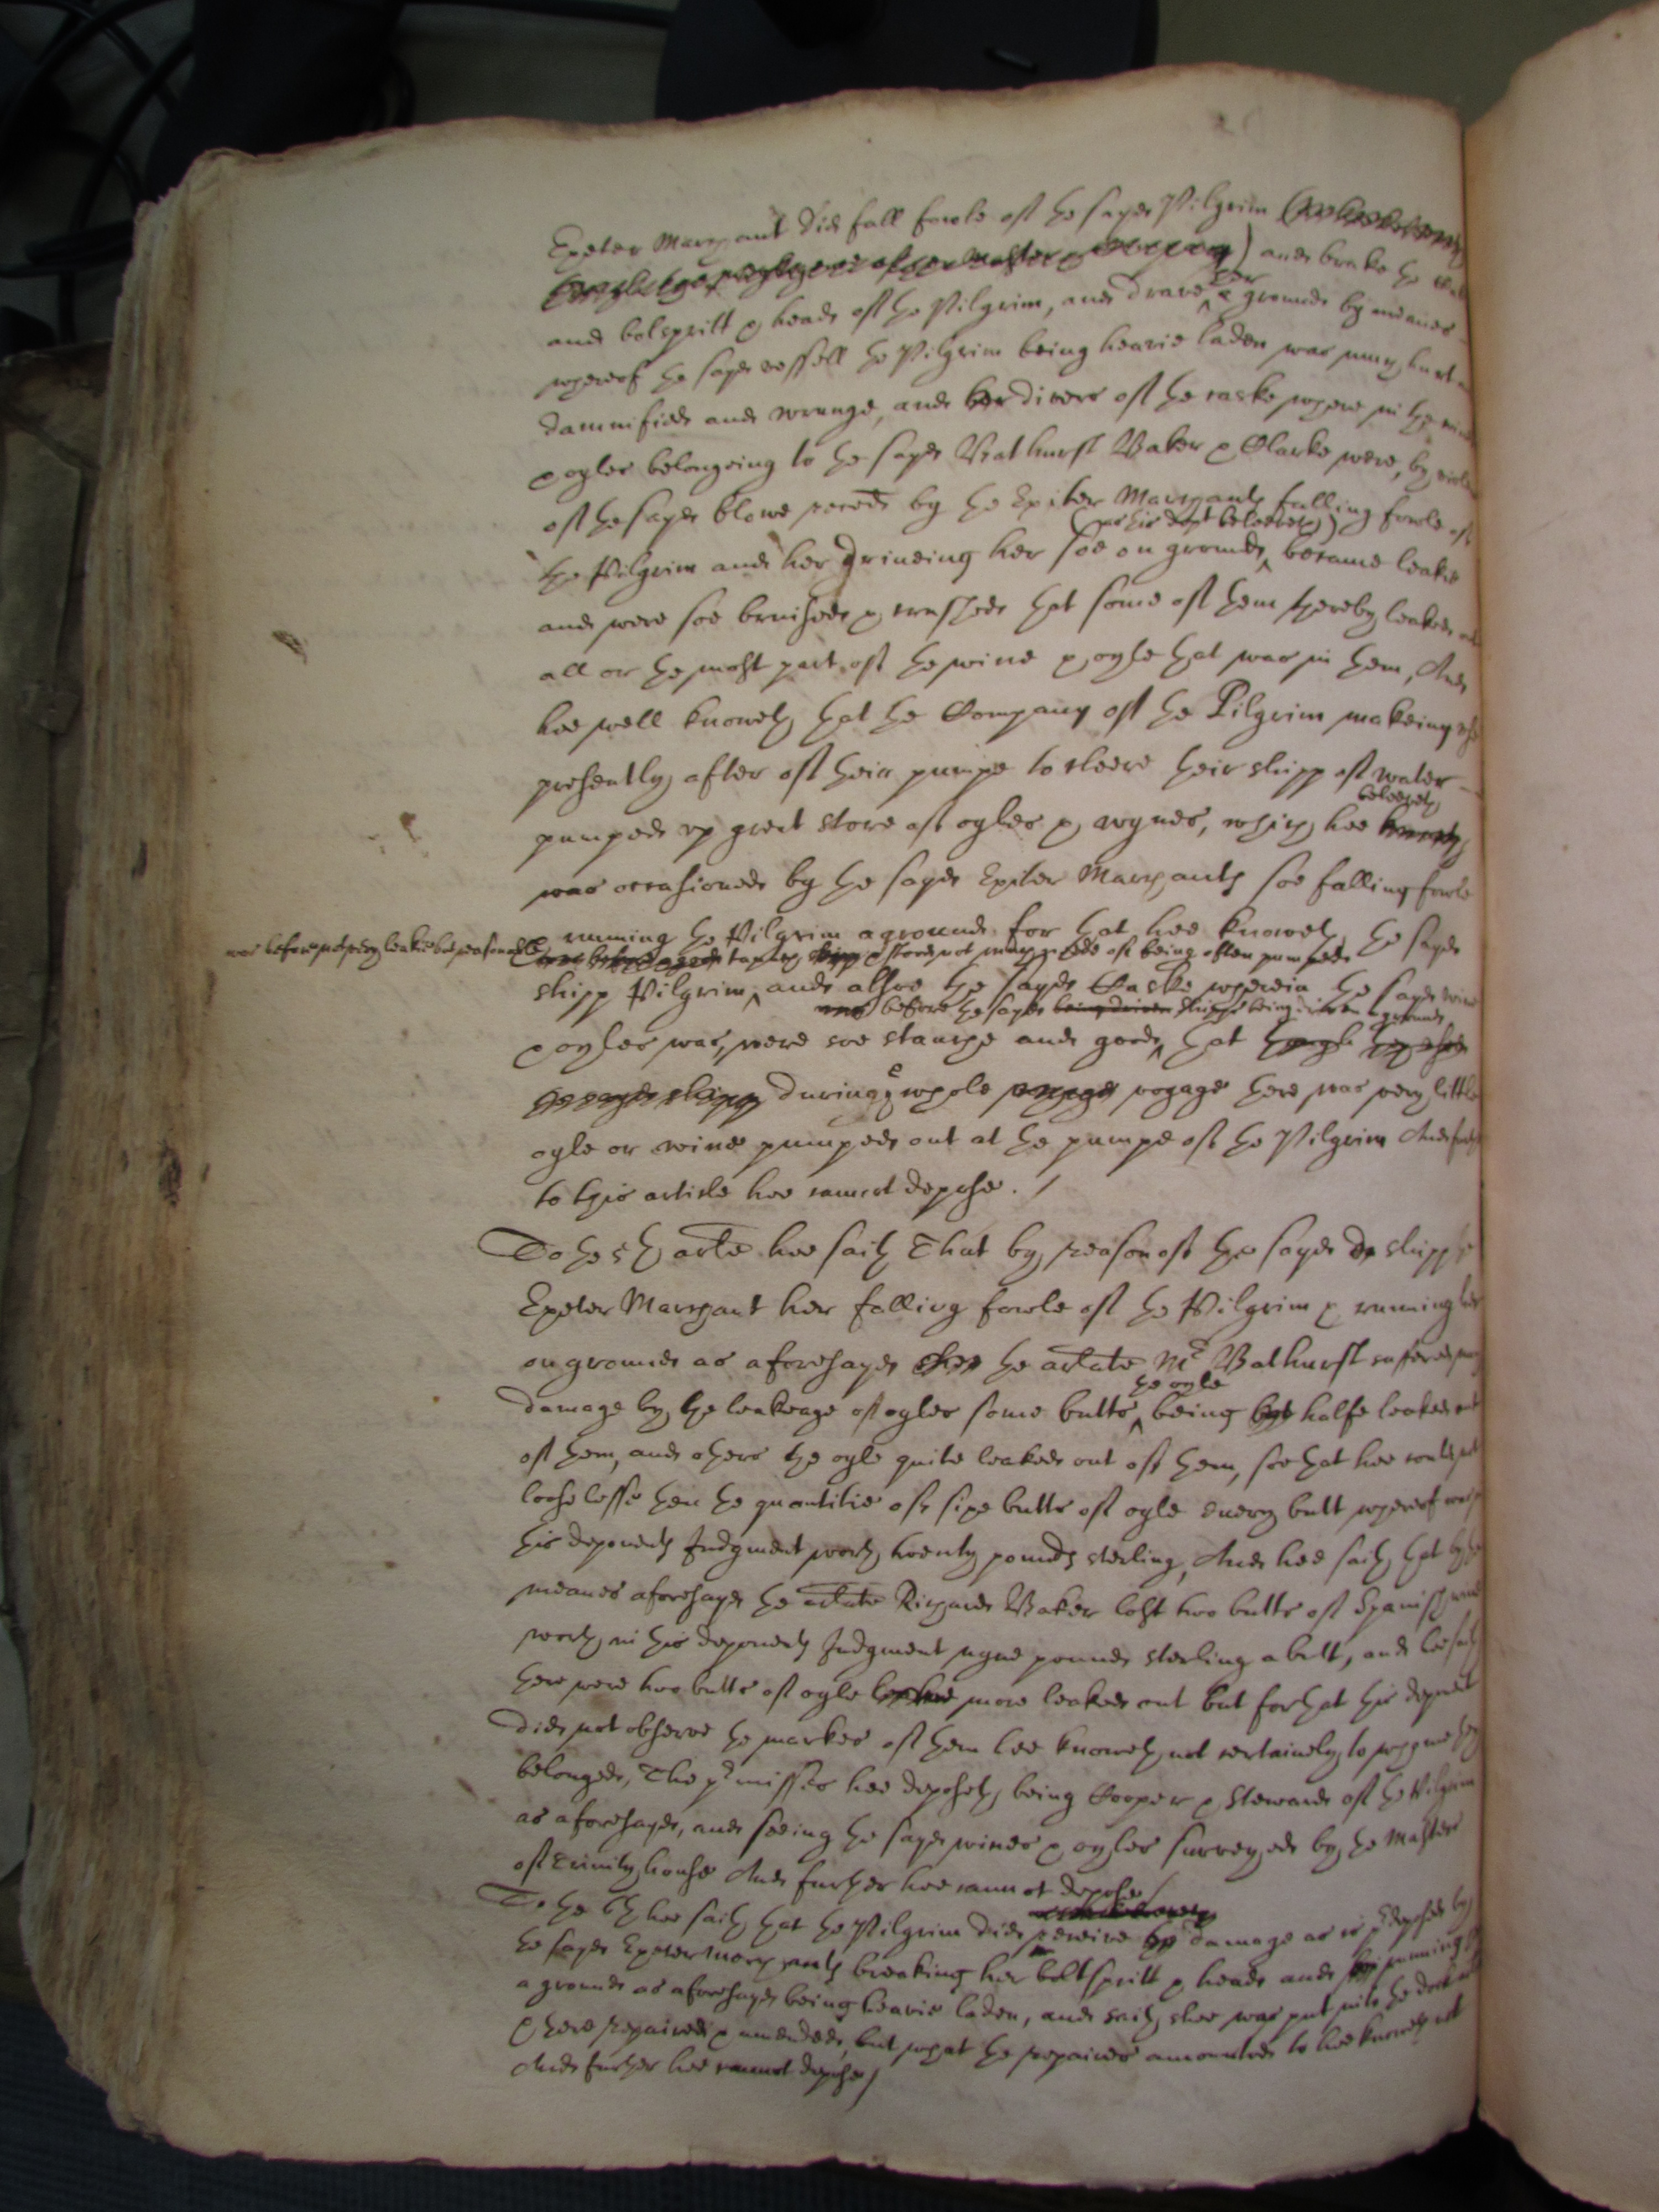 Exeter Marchant did fall fowle of the sayd Pilgrim
and brake the
and bolspritt & heade of the Pilgrim, and drave her a grounde by meanes
whereof the sayd vessell the Pilgrim being heavie laden was much hurt
damnified and wrunge, and divers of the caske where in the wine
& oyles belongeing to the sayd Bathurst Baker & Clarke were, by
of the sayd blowe receed by the Exeter Marchants falling fowle of
(as his dept beleeveth)
the Pilgrim and her driveing her soe on grounde, became leakie
and were soe bruished & crushed that some of them thereby leaked
all or the most part of the wine & oyle that was in them, And
hee well knoweth that the Company of the Pilgrim makeing use
presently after of their pumpe to cleere their shipp of water
beleeveth
pumped up great store of oyles & wynes, which hee knoweth
was occasioned by the sayd Exeter Marchants soe falling fowle
& running the Pilgrim a grounde for that hee knoweth the sayd
was before not very leakie but reasonable
shipp & stood not much in neede of being often pumped
shipp Pilgrim, and alsoe the sayd Caske wherein the sayd wine
before the sayd being driven shipps being driven a grounde
& oyles was, were soe staunge and good, that
during ye whole voyage there was very little
oyle or wine pumped out at the pumpe of the Pilgrim And further
to this article hee cannot depose. /
To the 5th arle hee saith That by reason of the sayd shipp the
Exeter Marchant her falling fowle of the Pilgrim & running her
on grounde as aforesayd the arlate Mr Bathurst suffered much
the oyle
damage by the leakeage of oyles some butts being halfe leaked out
of them, and others the oyle quite leaked out of them, soe that hee could not
loose lesse then the quantitie of sixe butts of oyle every butt whereof was in
his deponents Judgment worth twenty pounds sterling, And hee saith that by the
meanes aforesayd the arlate Richard Baker lost two butts of Spanish wine
worth in his deponents Judgment nyne pounds sterling a butt, and hee saith
there were two butts of oyle more leaked out but for that his deponent
did not observe the markes of them hee knoweth not certainely to whome they
belonged, The pmisses hee deposeth being Cooper & Steward of the Pilgrim
as aforesayd, and seeing the sayd wines & oyles surveyed by the Masters
of Trinity house And further hee cannot depose /
To the 6th hee saith that the Pilgrim did receive damage as is pdeposed by
the sayd Exeter Marchants breaking her boltspritt & heade and running her
a grounde as aforesayd being heavie laden, and saith shee was put into the dock
& there repaired & amended, but what the repaires amounted to hee knoweth not
And further hee cannot depose /